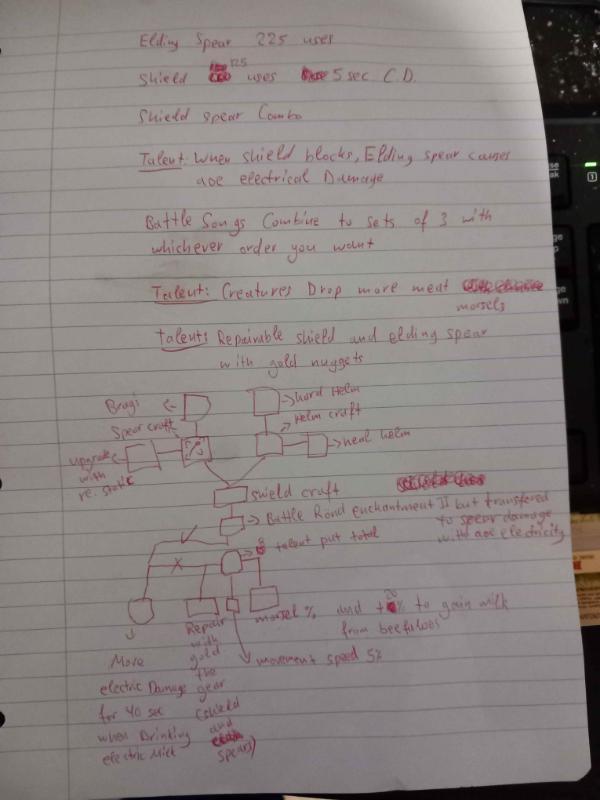 Elding Spear 225 uses
Shield 125 uses 5 sec C.D.
Shield Spear Combo
Talent: When shield blocks, Elding spear causes
aoe electrical Damage
Battle Songs Combine to sets of 3 with
whichever order you want
Talent: Creatures Drop more meat
morsels
talent: Repairable shield and elding spear
with gold nuggets
Bragi
hord Helm
Spear craft
Helm craft
upgrade
with
re. static
heal helm
shield craft
Battle Rond enchantment II but transfered
to spear damage
with aoe electricity
8 talent put total
X
morsel % and +20% to gain milk
from beefaloes
movement speed 5%
Repair
with
gold
the
gear
(shield
and
spears)
More
electric Damage
for 40 sec
when Drinking
electric Milk